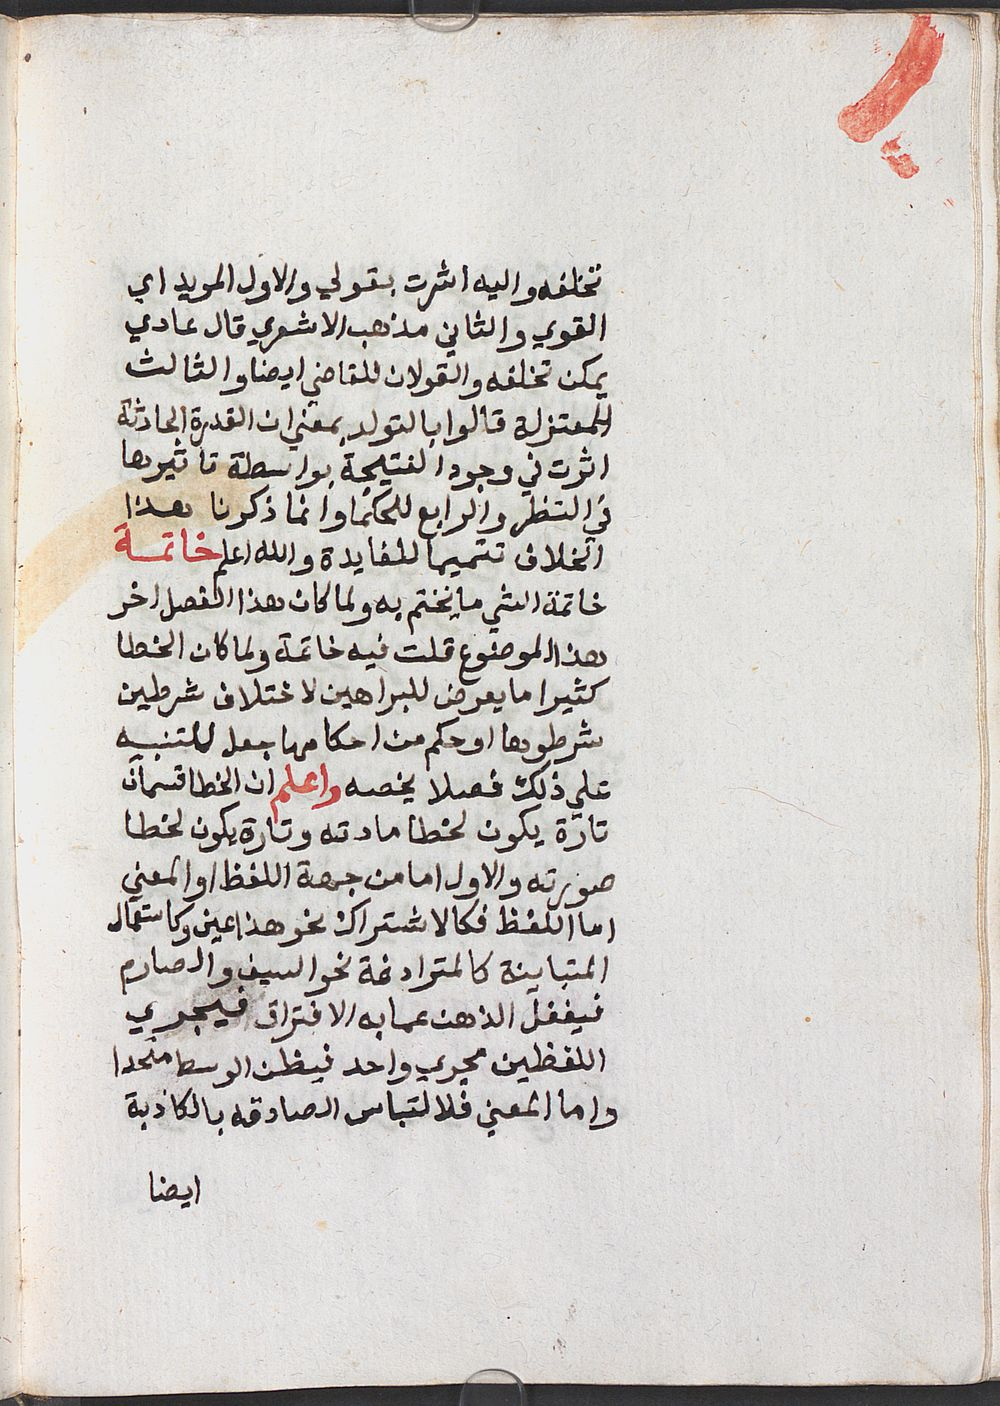 تخلفه واليه اشرت بقولي والاول المويد اي
القوي والثاني مذهب الاشعري قال عادي
يمكن تخلفه والقولان للقاضي ايضا والثالث
للمعتزلة قالوا بالتولد بمعني ان القدرة الحادثة
اثرت في وجود النتيجة بواسطة تاثيرها
في النظر والرابع للحكما وانما ذكرنا هذا
الخلاف تتميما للفايدة والله اعلم خاتمة
خاتمة الشي ما يختم به ولما كان هذا الفصل اخر
هذا الموضوع قلت فيه خاتمة ولما كان الخطا
كثيرا ما يعرض للبراهين لاختلاف شرطين
شرطوها او حكم من احكامها جعل للتنبيه
علي ذلك فصلا يخصه واعلم ان الخطا قسمان
تارة يكون لخطا مادته وتارة يكون لخطا
صورته والاول اما من جهة اللفظ او المعني
اما اللفظ فكالاشتراك نحو هذا عين وكاستعمال
المتباينة كالمترادفة نحو السيف والصارم
فيغفل الذهن عما به الافتراق فيجري
اللفظين مجري واحد فيظن الوسط متحدا
واما المعني فلالتباس الصادقه بالكاذبة
ايضا